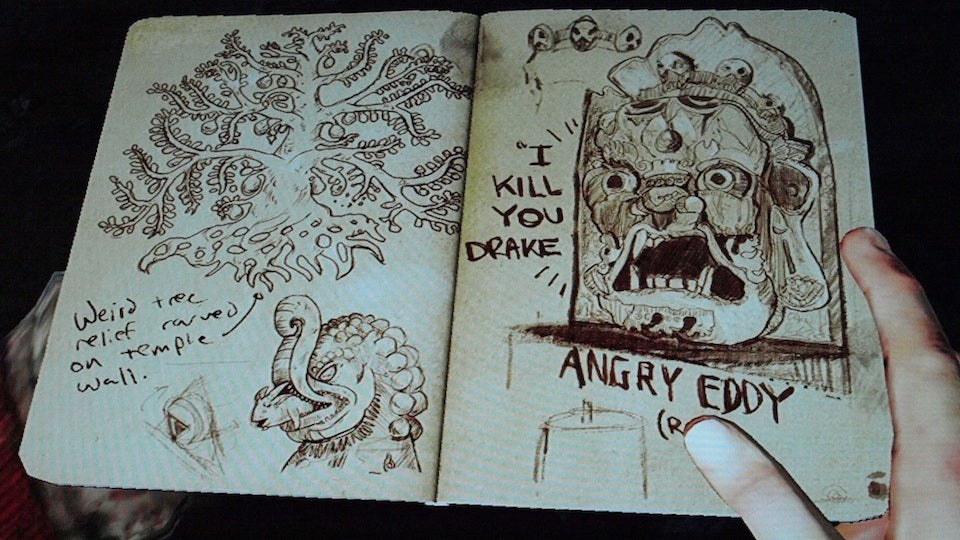 Weird tree
relief carved
on temple
wall.
"I
KILL
YOU
DRAKE
ANGRY EDDY
(R